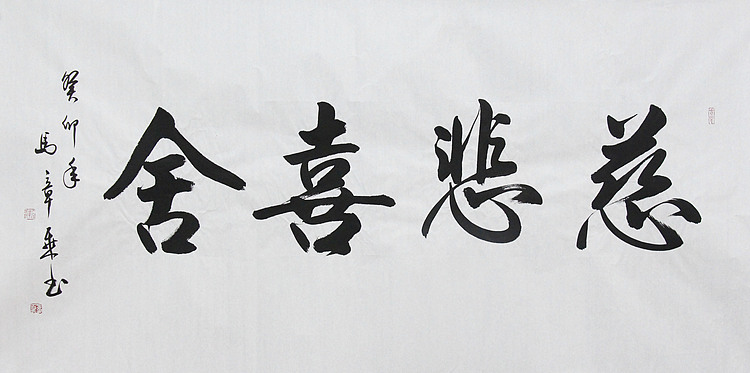 慈悲喜舍
癸卯年
馬章乘书